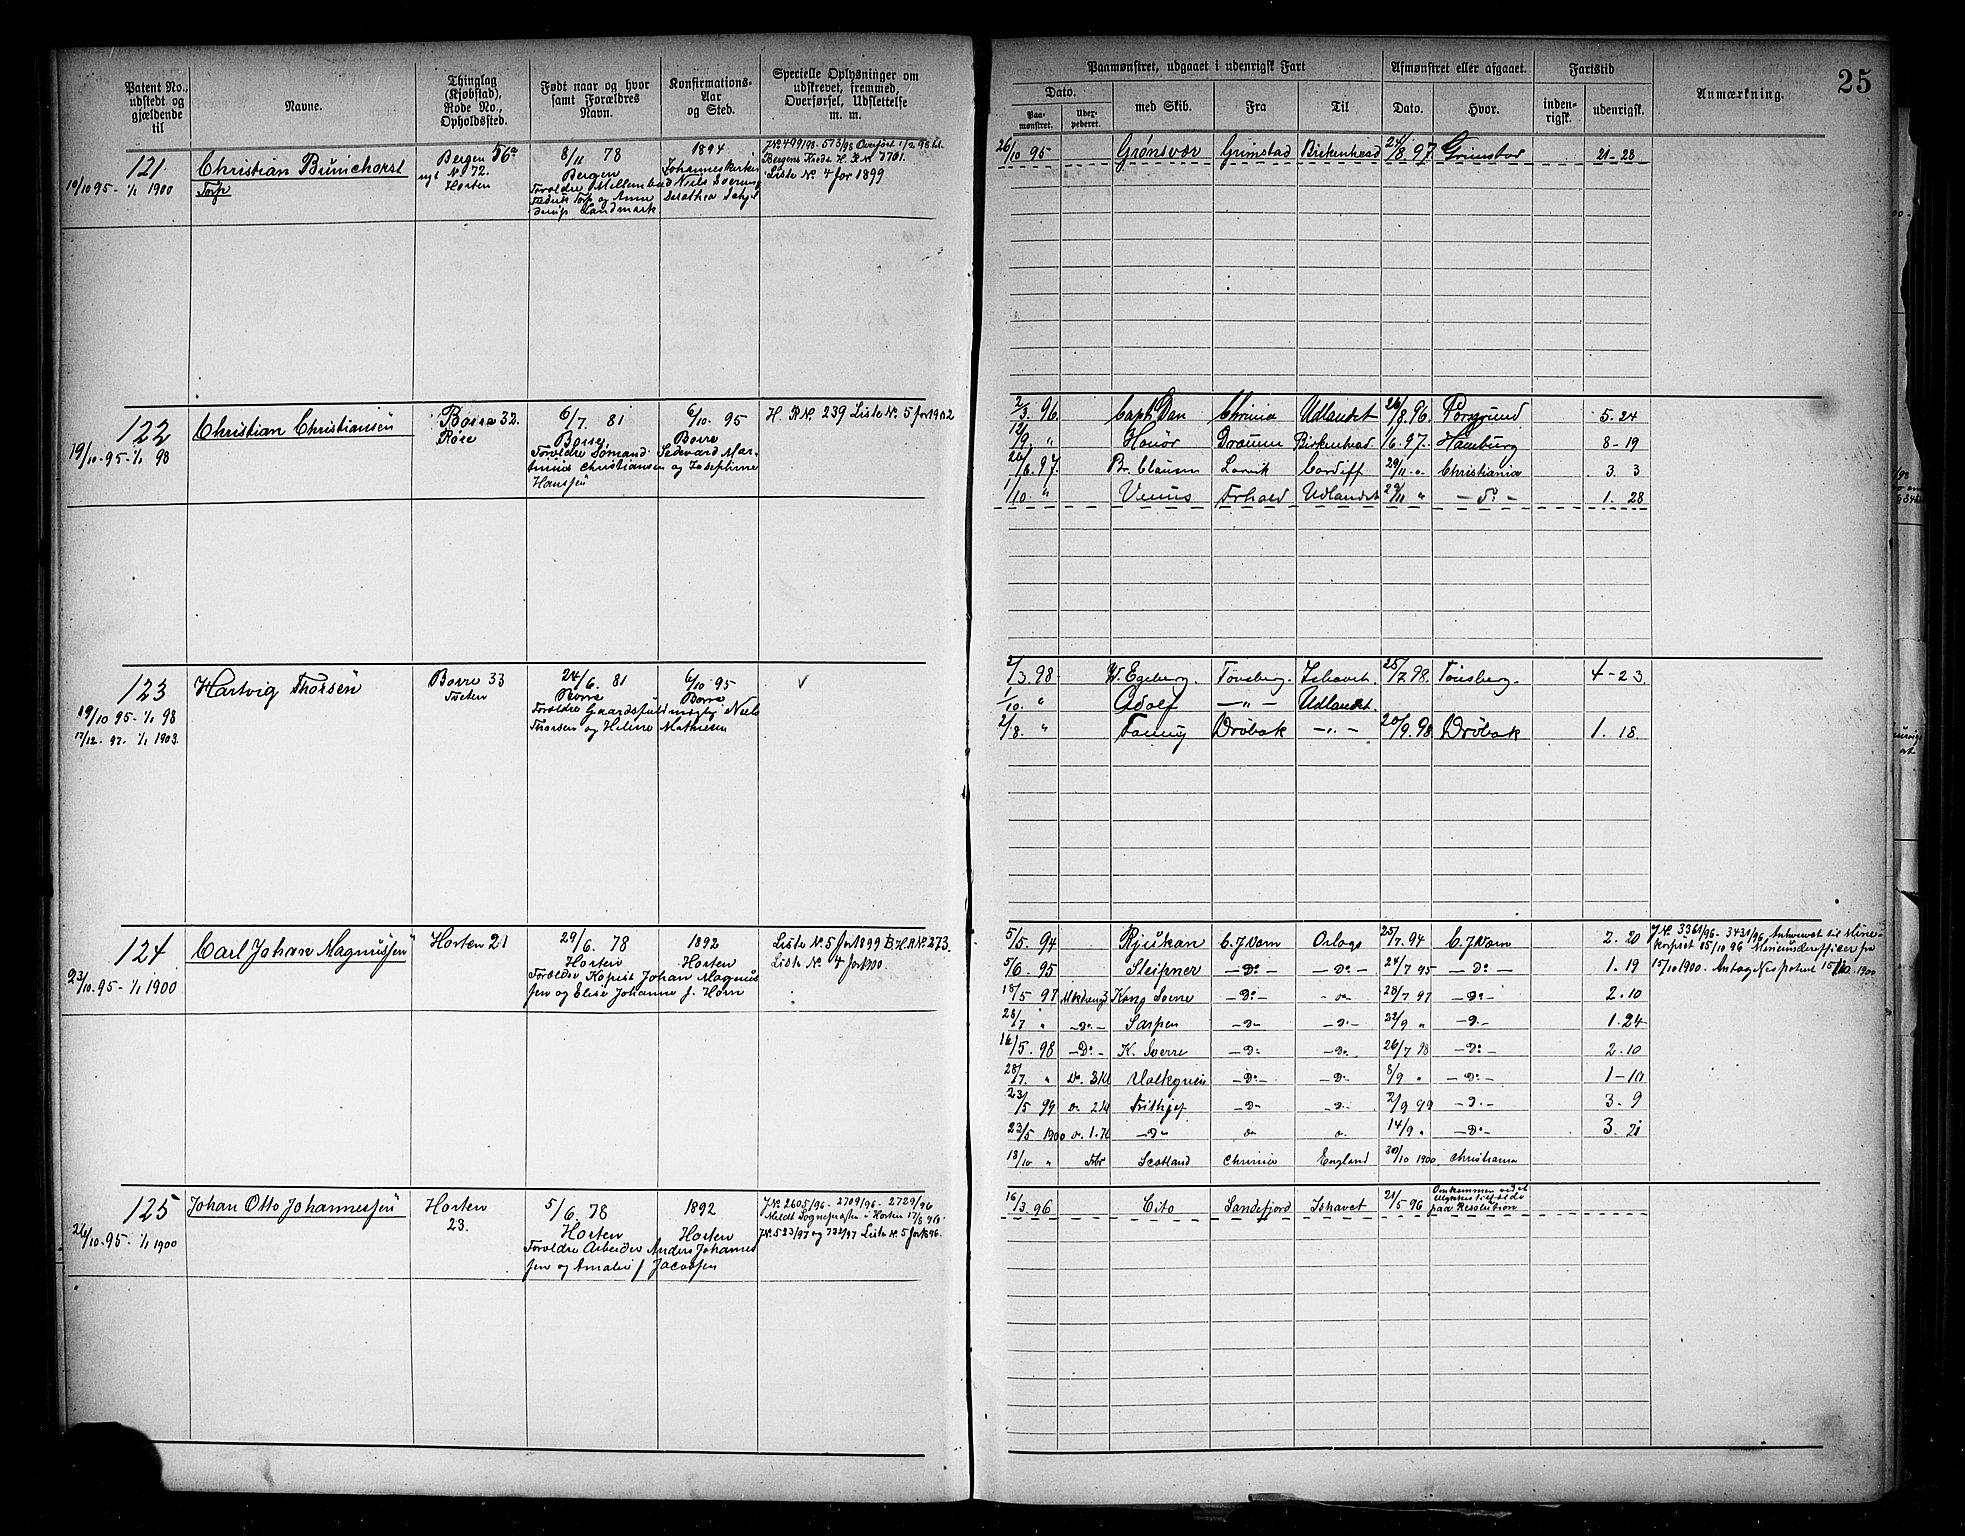 25
Patent No., udstedt og gjældende til
Navne.
Thinglag (Kjøbstad), Rode No., Opholdssted.
Født naar og hvor samt Forældres Navn.
Konfirmations-Aar og Sted.
Specielle Oplysninger om udskrevet, fremmed, Overførsel, Udslettelse m. m.
Paamønstret, udgaaet i udenrigsk Fart
Dato.
Paa-mønstret.
med Skib.
Fra
Til
Afmønstret eller afgaaet.
Dato.
Hvor.
Fartstid
inden-rigsk.
udenrigsk.
Anmærkning.
121
10/10 95 - 1/1 1900
Christian Brunchorst
Torp
Bergen 56a
nyt No 72.
Horten
8/11 78
Bergen
1894
Liste No. 4 for 1899
26/10 95 Grønsvær Grimstad Birkenhead 24/8 97. Grimstad 21-28
122
19/10 - 95 - 1/1 98
Christian Christiansen
Borre 32.
6/7 81
Borre,
Forældre Sømand Sedevard Mar-
tinius Christiansen og Josephine
Hanssen
6/10 95
Borre
H. RN. 239 Liste No. 5 for 1902
2/3. 96 Capt. Dan Chrnia Udlandet 26/8. 96. Porsgrund 5-24
12/9. " Honor Drammen Birkenhead 1/6. 97. Hamburg 8-19
26/6. 97. Br. Clausen Larvik Cardiff 29/11 " Christiania 3. 3
1/10. " Venus Frhald Udlandet 29/11 " - do - 1. 28
123
19/10 95 - 1/1 98
17/12. 97. 1/1 1903.
Hartvig Thorsen
Borre 33
24/6. 81
Borre
Forældre Gaardsfuldmægtig Niels
Thorsen og Helene Mathisen
6/10 95
Borre
2/3. 98 W. Egeberg. Tønsberg. Ishavet. 25/7 98. Tønsberg. 4-23.
1/10. " Adolf - " - Udlandet.
2/8. " Fanny Drøbak - " - 20/9. 98 Drøbak 1. 18.
124
23/10. 95 - 1/1 1900
Carl Johan Magnussen
Horten 21
29/6. 78
Horten
Forældre Kopist Johan Magnus
sen og Elise Johanne f. Horn
1892
Horten
Liste No. 5 for 1899 B. H. RN. 273.
Liste No. 4 for 1900.
5/5. 94 Rjukan C. J. Værn Orlogs 25/7. 94 C. J. Værn 2. 20
5/6. 95 Sleipner - Do - - Do - 24/7 95 - Do - 1. 19
18/5 97 Kong Sverre - Do - - Do 28/7 97 - Do - 2. 10
28/7 " - Do - Sarpen - Do - - Do - 22/9 " - Do - 1. 24
16/5. 98 - Do - K. Sverre - Do - - Do - 26/7 98 - Do - 2. 10
28/7. " Do. 3 Kl Valkyrien - Do - - Do - 8/9 " - Do - 1-10
23/5 99 Do 2 Kl Frithjof - Do - - Do - 2/9 99 - Do - 3. 9
23/5 1900 Do. 1. Kl - Do - Do Do 14/9 " - Do - 3. 21
18/10 " Scotland Chrnia England 30/10 1900. Christiania
125
26/10 - 95 - 1/1 1900
Johan Otto Johannessen
Horten
23.
5/6. 78
Horten
Forældre Arbeider Anders Johannes
sen og Amalie f Jacobsen
1892
Horten
J.No. 2605/96 - 2709/96 - 2729/96
Meldt Sognepræsten i Horten 17/8 96.
J.No. 523/97 og 722/97 Liste No. 5 for 1896.
16/3. 96 Cito Sandefjord Ishavet 21/5 96 Omkommen ved et
Ulykkestilfælde
paa Resolution